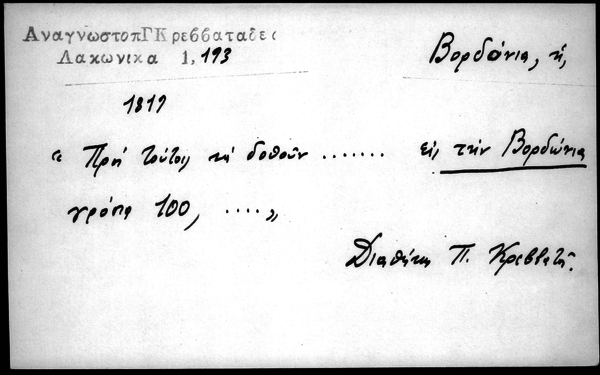 ΑναγνωστοπΓΚρεββαταδες Βορδόνια, ἡ,
Λακωνικα 1, 193
1819
“ νὰ δοθοῦν ....... εἰς τὴν Βορδώνια
γρόσια 100, .... „
Διαθήκη Π. Κρεββατᾶ.